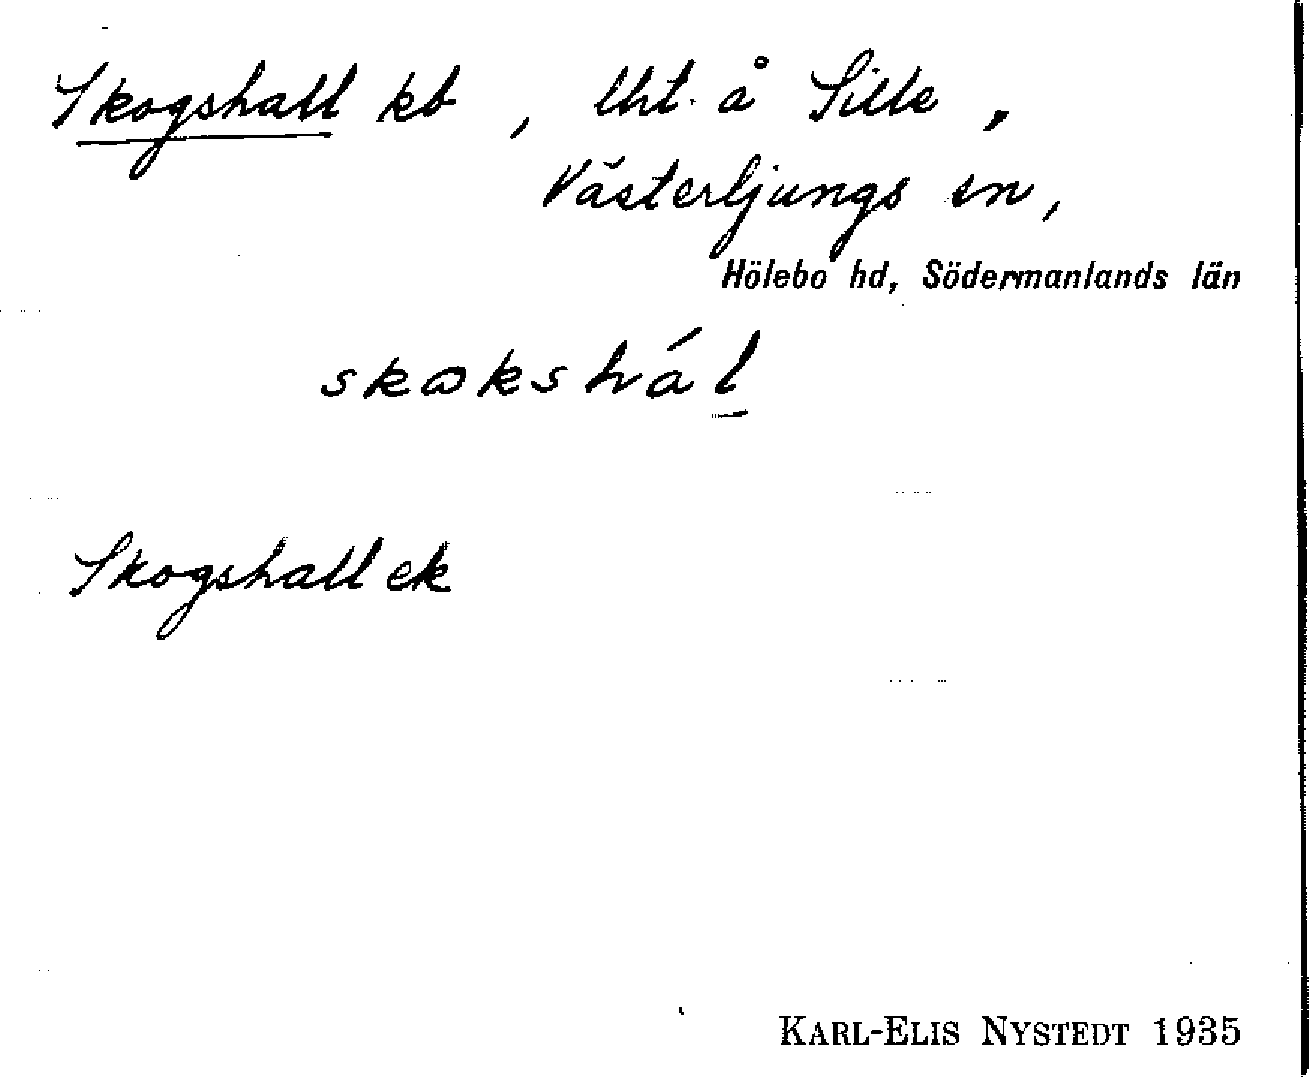 Skogshall kb, lht. å Sille,
Västerljungs sn,
Hölebo hd, Södermanlands län
skɷkshál̲
Skogshall ek
KARL-ELIS NYSTEDT 1935